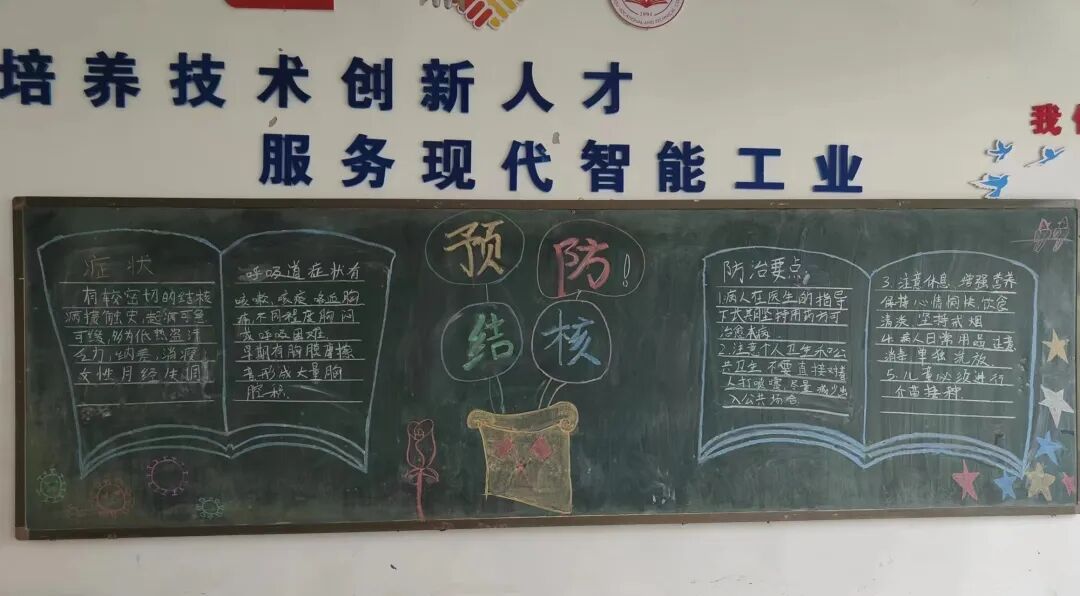 培养技术创新人才
服务现代智能工业
我
预
防!
结
核
症状
有较密切的结核
病接触史,起病可急
可缓,多为低热盗汗
乏力、纳差、消瘦
女性月经失调
呼吸道症状有
咳嗽、咳痰
痛不同程度胸闷
或呼吸困难
早期有胸膜摩擦
音形成大量胸
腔积
防治要点
1.病人在医生的指导
下长期坚持用药方可
治愈本病
2.注意个人卫生和公
共卫生 不要直接对着
人打喷嚏,尽量减少出
入公共场合
3.注意休息 增强营养
保持心情愉快,饮食
清淡 坚持戒烟
4.病人日常用品注意
消毒 单独洗放
5.儿童必须进行
介苗接种